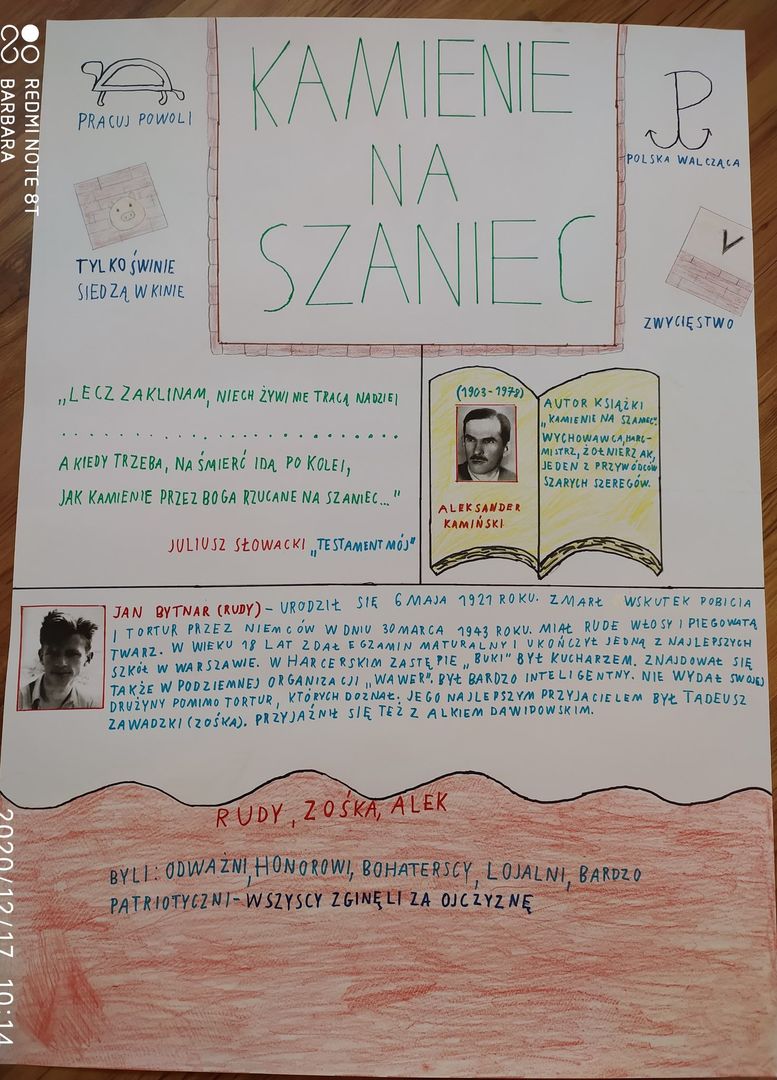 KAMIENIE
NA
SZANIEC
PRACUJ POWOLI
TYLKO ŚWINIE
SIEDZĄ W KINIE
POLSKA WALCZĄCA
ZWYCIĘSTWO
„LECZ ZAKLINAM, NIECH ŻYWI NIE TRACĄ NADZIEI
. . . . . . . . . . . . . . . . . . . . . . . . . .
A KIEDY TRZEBA, NA ŚMIERĆ IDĄ PO KOLEI,
JAK KAMIENIE PRZEZ BOGA RZUCANE NA SZANIEC..."
JULIUSZ SŁOWACKI „TESTAMENT MÓJ"
(1903-1978)
ALEKSANDER
KAMIŃSKI
AUTOR KSIĄŻKI
„KAMIENIE NA SZANIEC".
WYCHOWAWCA, HARC-
MISTRZ, ŻOŁNIERZ AK,
JEDEN Z PRZYWÓDCÓW
SZARYCH SZEREGÓW.
JAN BYTNAR (RUDY) - URODZIŁ SIĘ 6 MAJA 1921 ROKU. ZMARŁ WSKUTEK POBICIA
I TORTUR PRZEZ NIEMCÓW W DNIU 30 MARCA 1943 ROKU. MIAŁ RUDE WŁOSY I PIEGOWATĄ
TWARZ. W WIEKU 18 LAT ZDAŁ EGZAMIN MATURALNY I UKOŃCZYŁ JEDNĄ Z NAJLEPSZYCH
SZKÓŁ W WARSZAWIE. W HARCERSKIM ZASTĘPIE „BUKI" BYŁ KUCHARZEM. ZNAJDOWAŁ SIĘ
TAKŻE W PODZIEMNEJ ORGANIZACJI „WAWER". BYŁ BARDZO INTELIGENTNY. NIE WYDAŁ SWOJEJ
DRUŻYNY POMIMO TORTUR, KTÓRYCH DOZNAŁ. JEGO NAJLEPSZYM PRZYJACIELEM BYŁ TADEUSZ
ZAWADZKI (ZOŚKA). PRZYJAŹNIŁ SIĘ TEŻ Z ALKIEM DAWIDOWSKIM.
RUDY, ZOŚKA, ALEK
BYLI: ODWAŻNI, HONOROWI, BOHATERSCY, LOJALNI, BARDZO
PATRIOTYCZNI - WSZYSCY ZGINĘLI ZA OJCZYZNĘ
REDMI NOTE 8T
BARBARA
2020/12/17 10:14